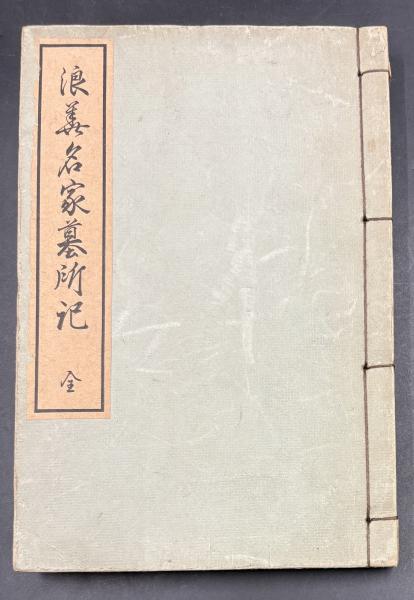 浪華名家墓所記
全